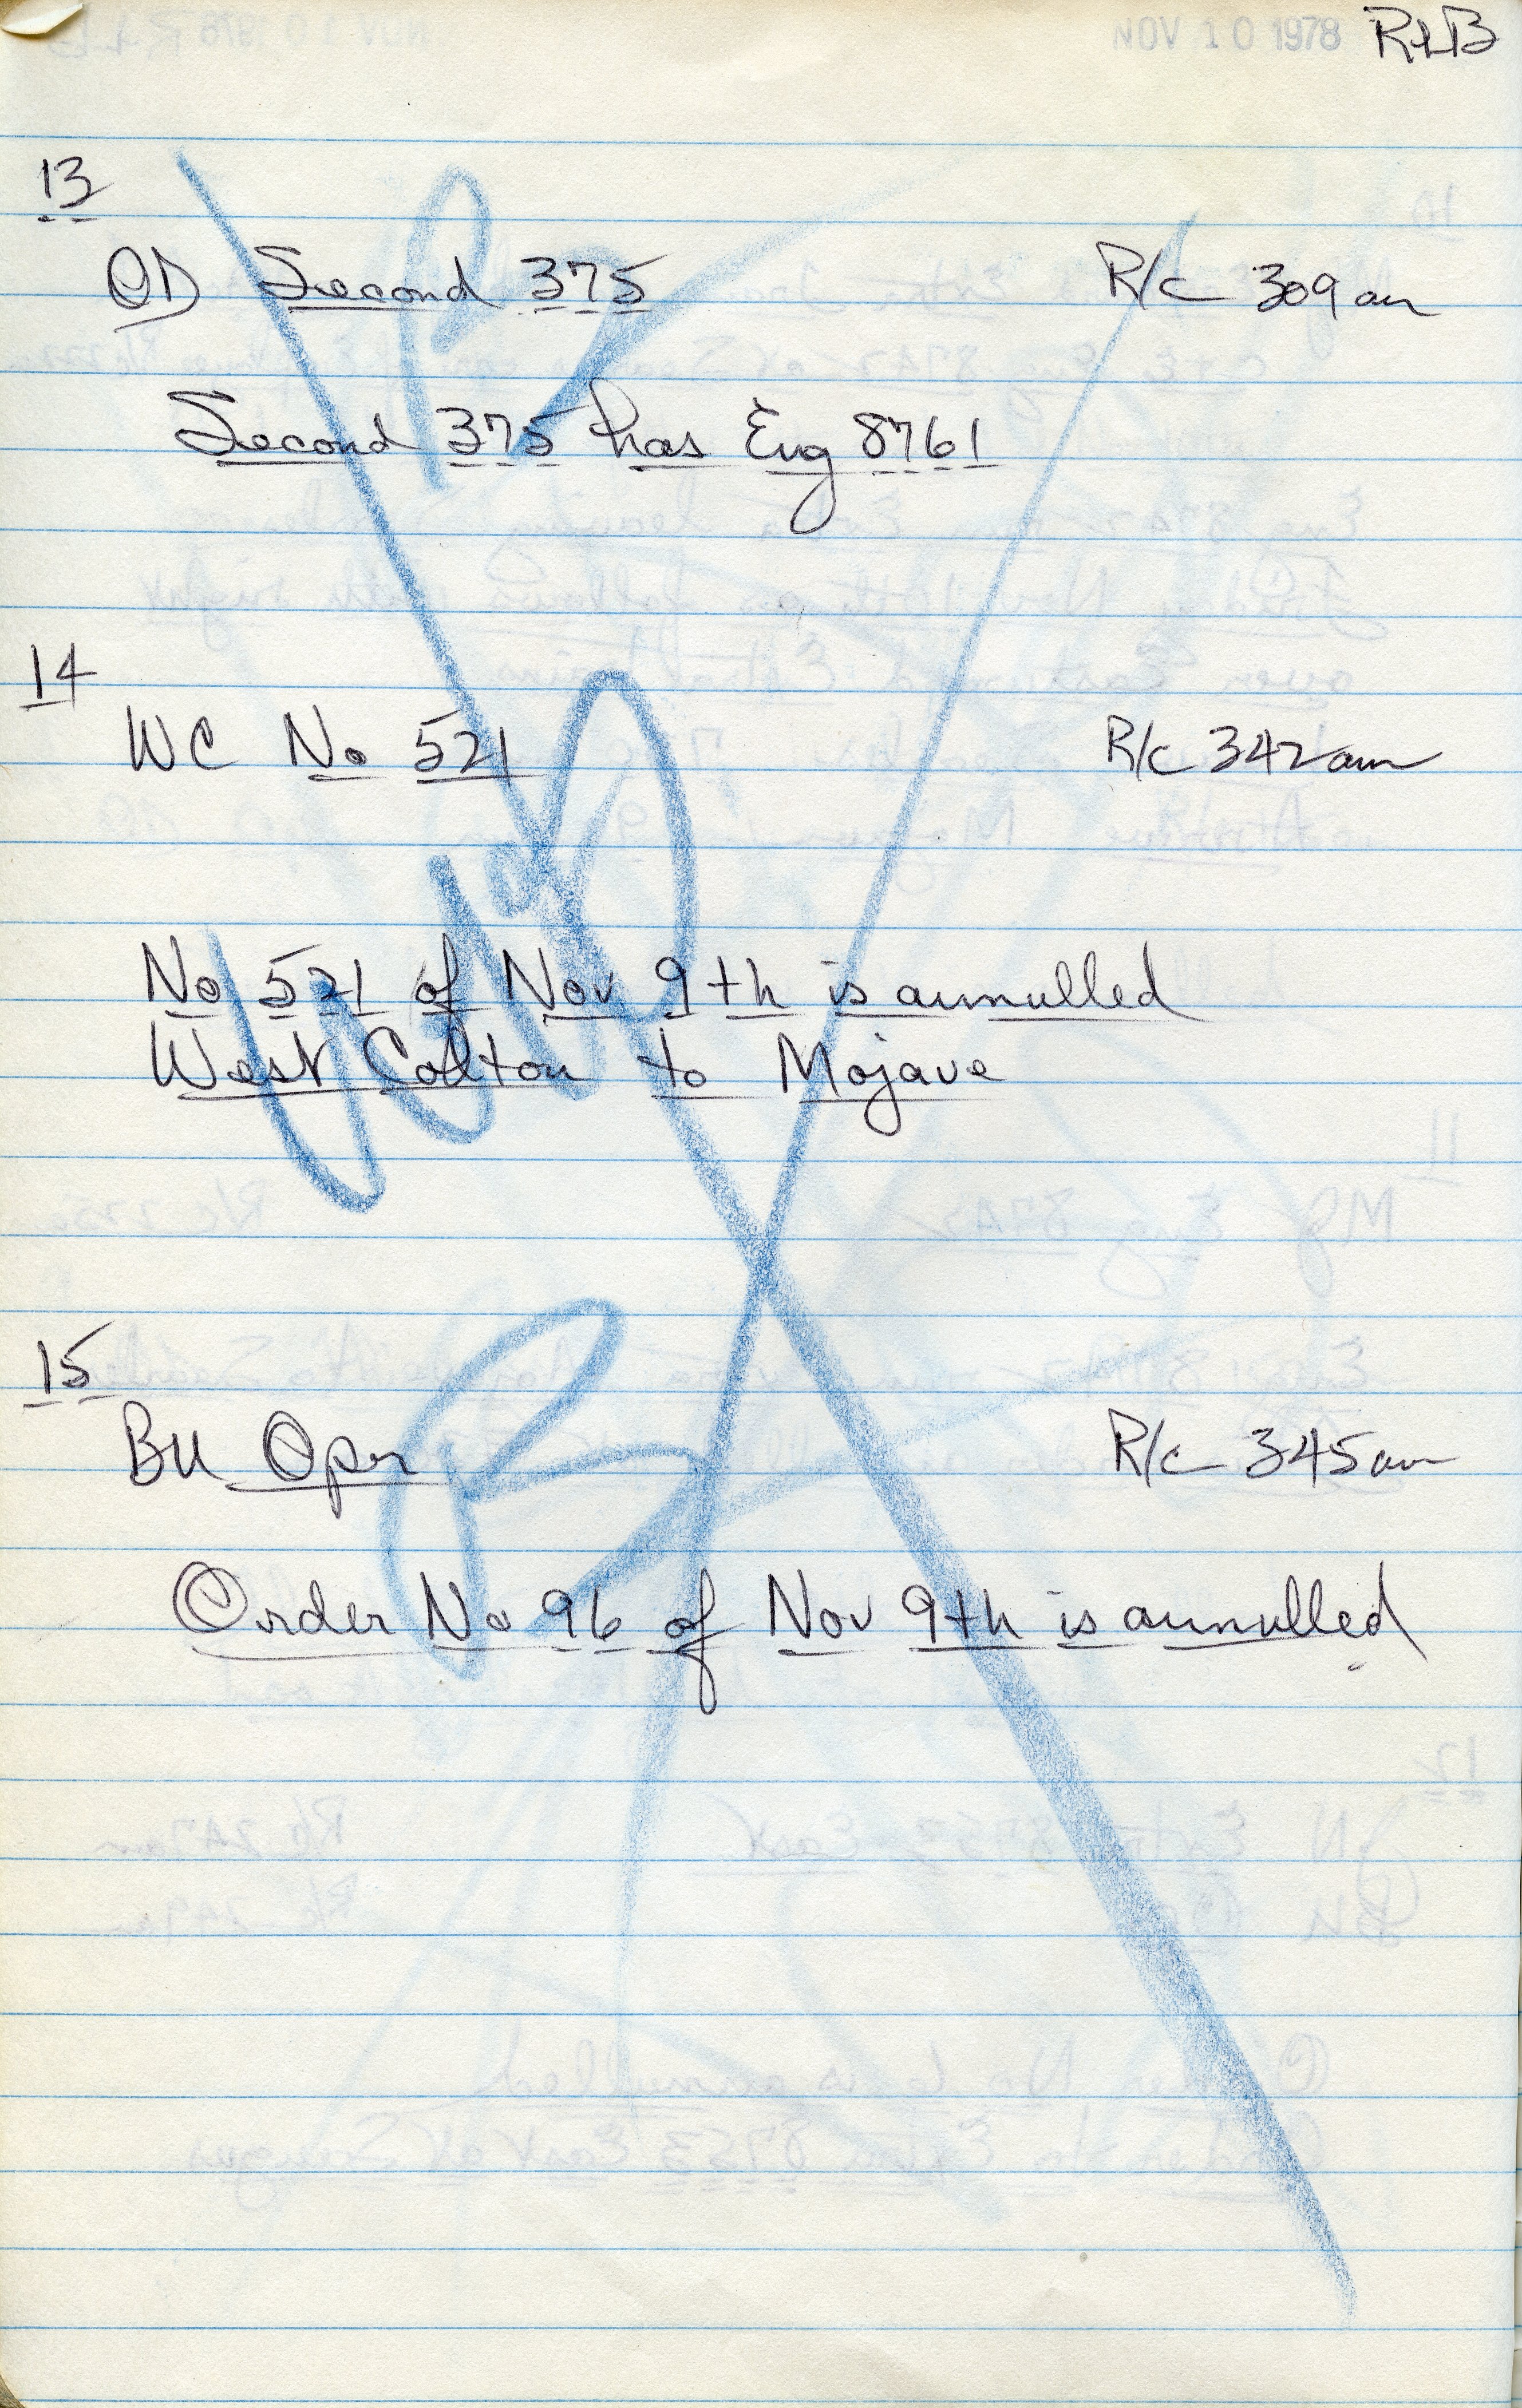 NOV 10 1978 RLB
13
OD Second 375 R/c 309am
Second 375 has Eng 8761
14
WC No 521 R/c 342am
No 521 of Nov 9th is annulled
West Colton to Mojave
15
BU Opr R/c 345am
Order No 96 of Nov 9th is annulled